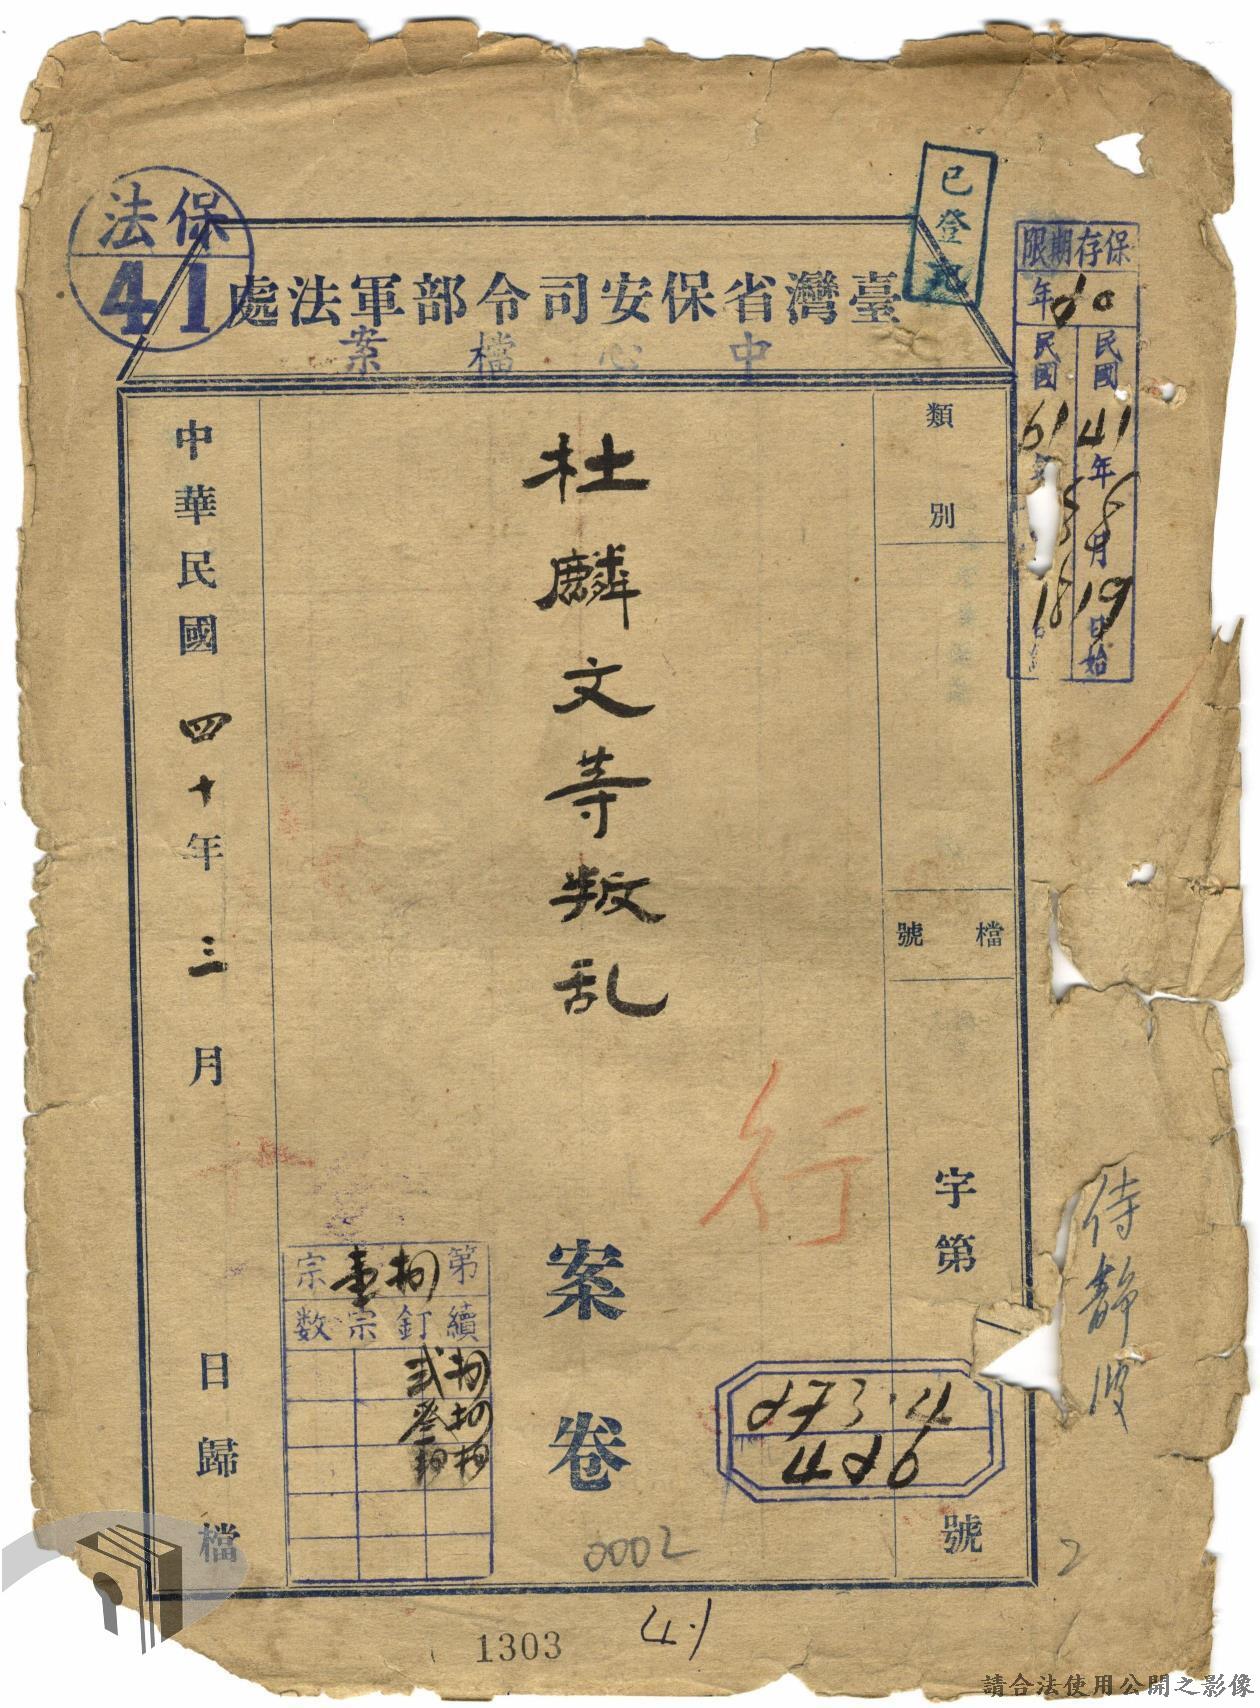 保法
41
已登記
臺灣省保安司令部軍法處
中心檔案
保存期限
年
民國41年6月19日始
民國61年
18
類別
檔號
字第
號
杜麟文等叛乱
案卷
行
中華民國四十年三月
日歸檔
第拗壹宗
續釘宗数
拗貳
拗叄
273·4
426
待靜波
0002
2
1303
4.1
請合法使用公開之影像